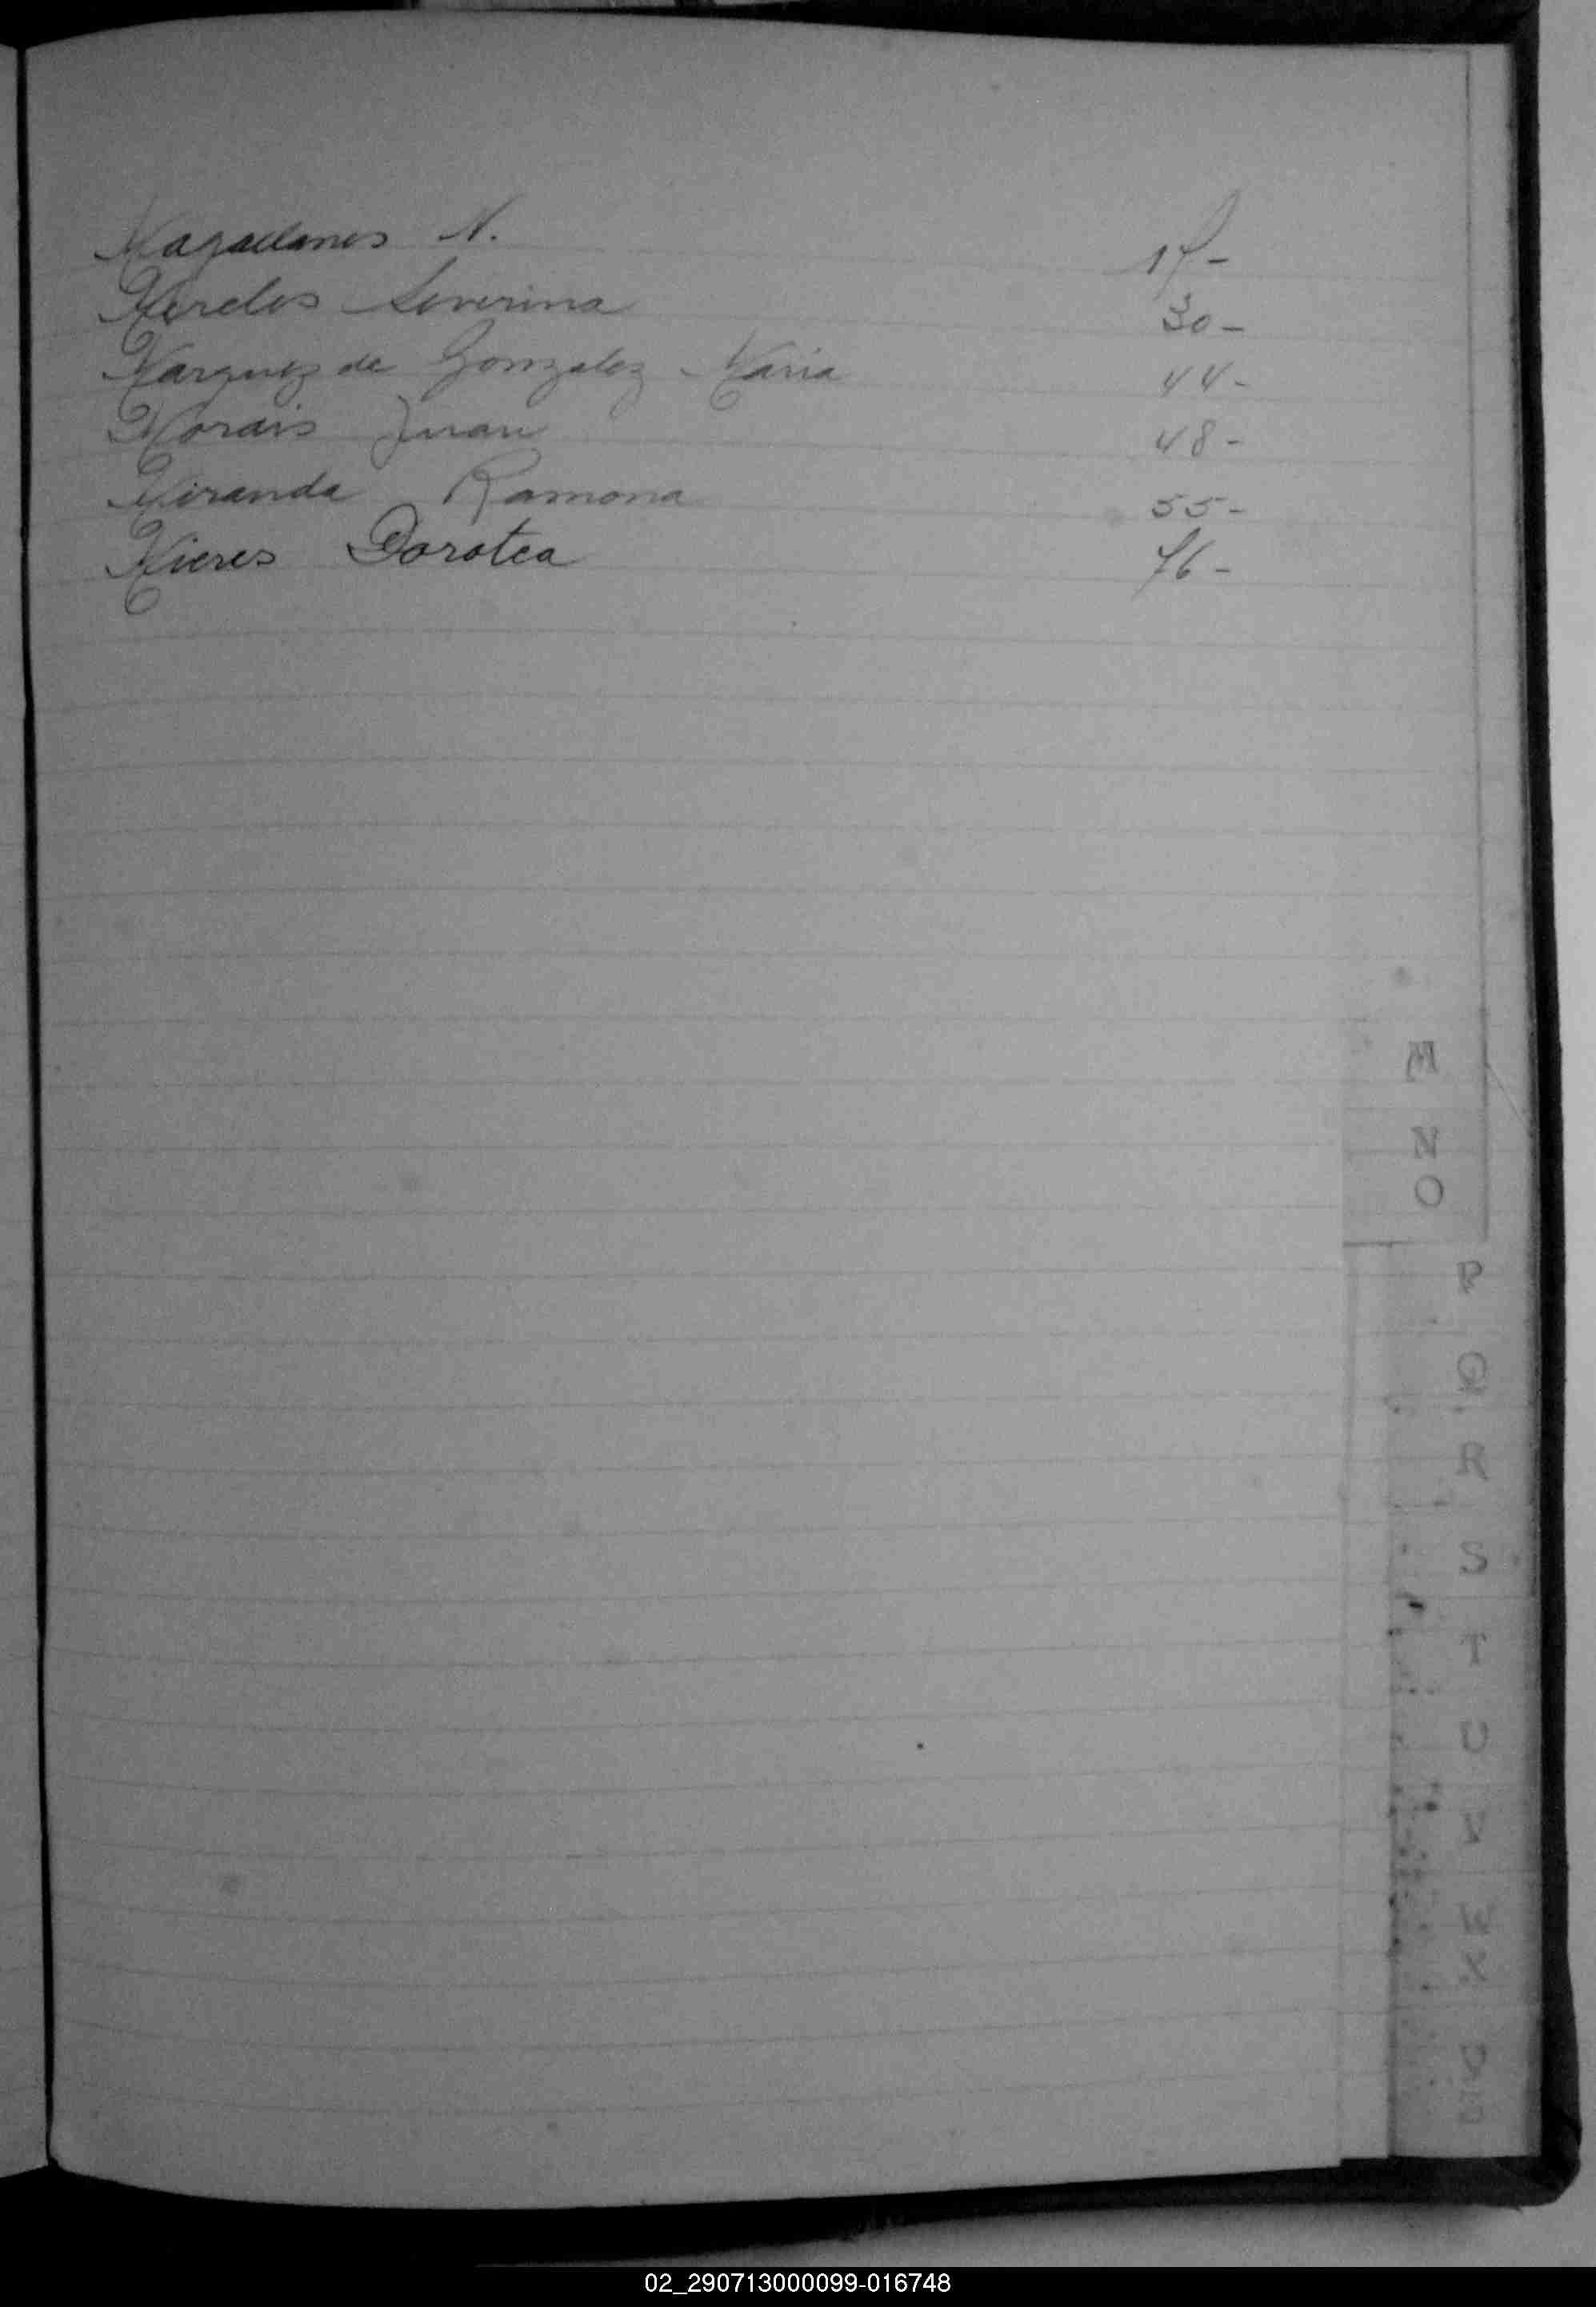 Magallanes N. 17-
Mereles Severina 30-
Marquez de Gonzalez Maria 44-
Morais Juan 48-
Miranda Ramona 55-
Mieres Dorotea 76-
M
N
O
P
Q
R
S
T
U
V
X
02_290713000099-016748